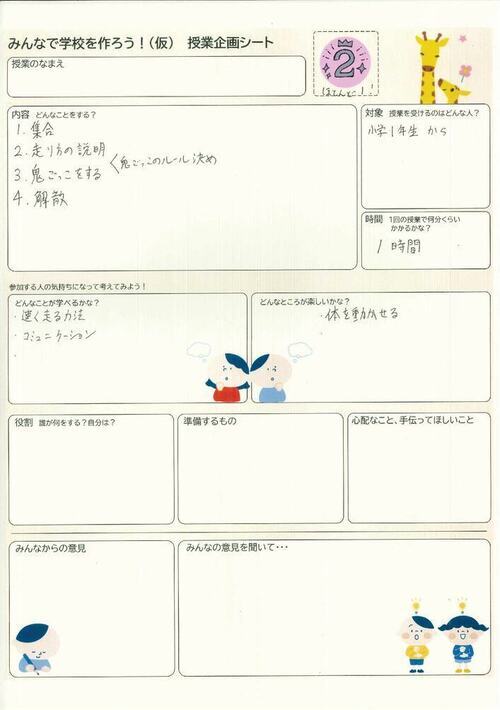 みんなで学校を作ろう！（仮）　授業企画シート
2
授業のなまえ
内容　どんなことをする？
1. 集合
2. 走り方の説明
く鬼ごっこのルール決め
3. 鬼ごっこをする
4. 解散
対象　授業を受けるのはどんな人？
小学1年生 から
時間　1回の授業で何分くらい
かかるかな？
1 時間
参加する人の気持ちになって考えてみよう！
どんなことが学べるかな？
・速く走る方法
・コミュニケーション
・
どんなところが楽しいかな？
・体を動かせる
役割　誰が何をする？自分は？
準備するもの
心配なこと、手伝ってほしいこと
みんなからの意見
みんなの意見を聞いて・・・